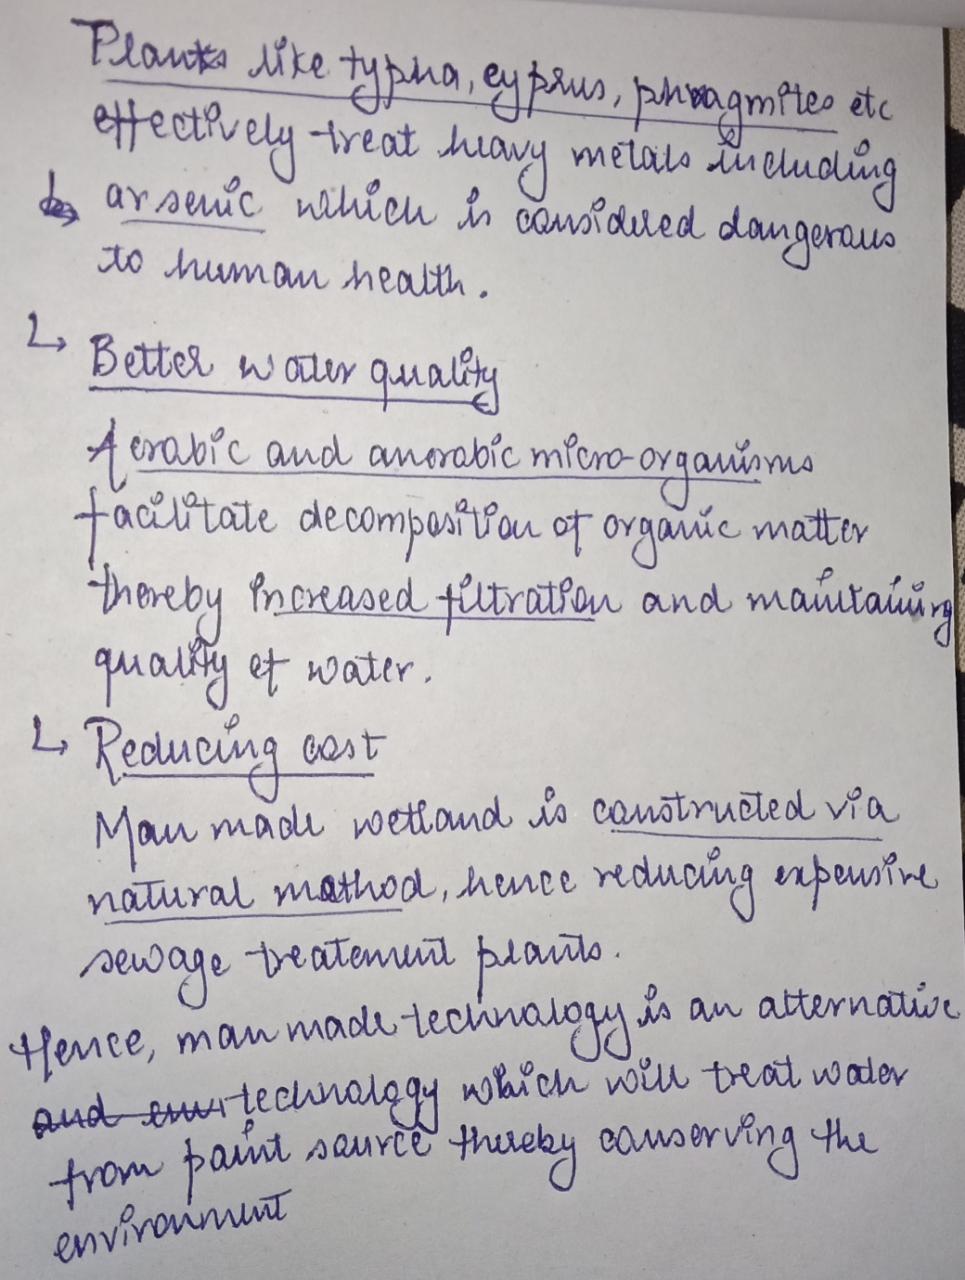 Plants like typha, cyprus, phragmites etc
effectively treat heavy metals including
↳ arsenic which is considered dangerous
to human health.
↳ Better water quality
Aerobic and anerobic micro-organisms
facilitate decomposition of organic matter
thereby increased filtration and maintaining
quality of water.
↳ Reducing cost
Man made wetland is constructed via
natural mathod, hence reducing expensive
sewage treatement plants.
Hence, man made technology is an alternative
technology which will treat water
from point source thereby conserving the
environment